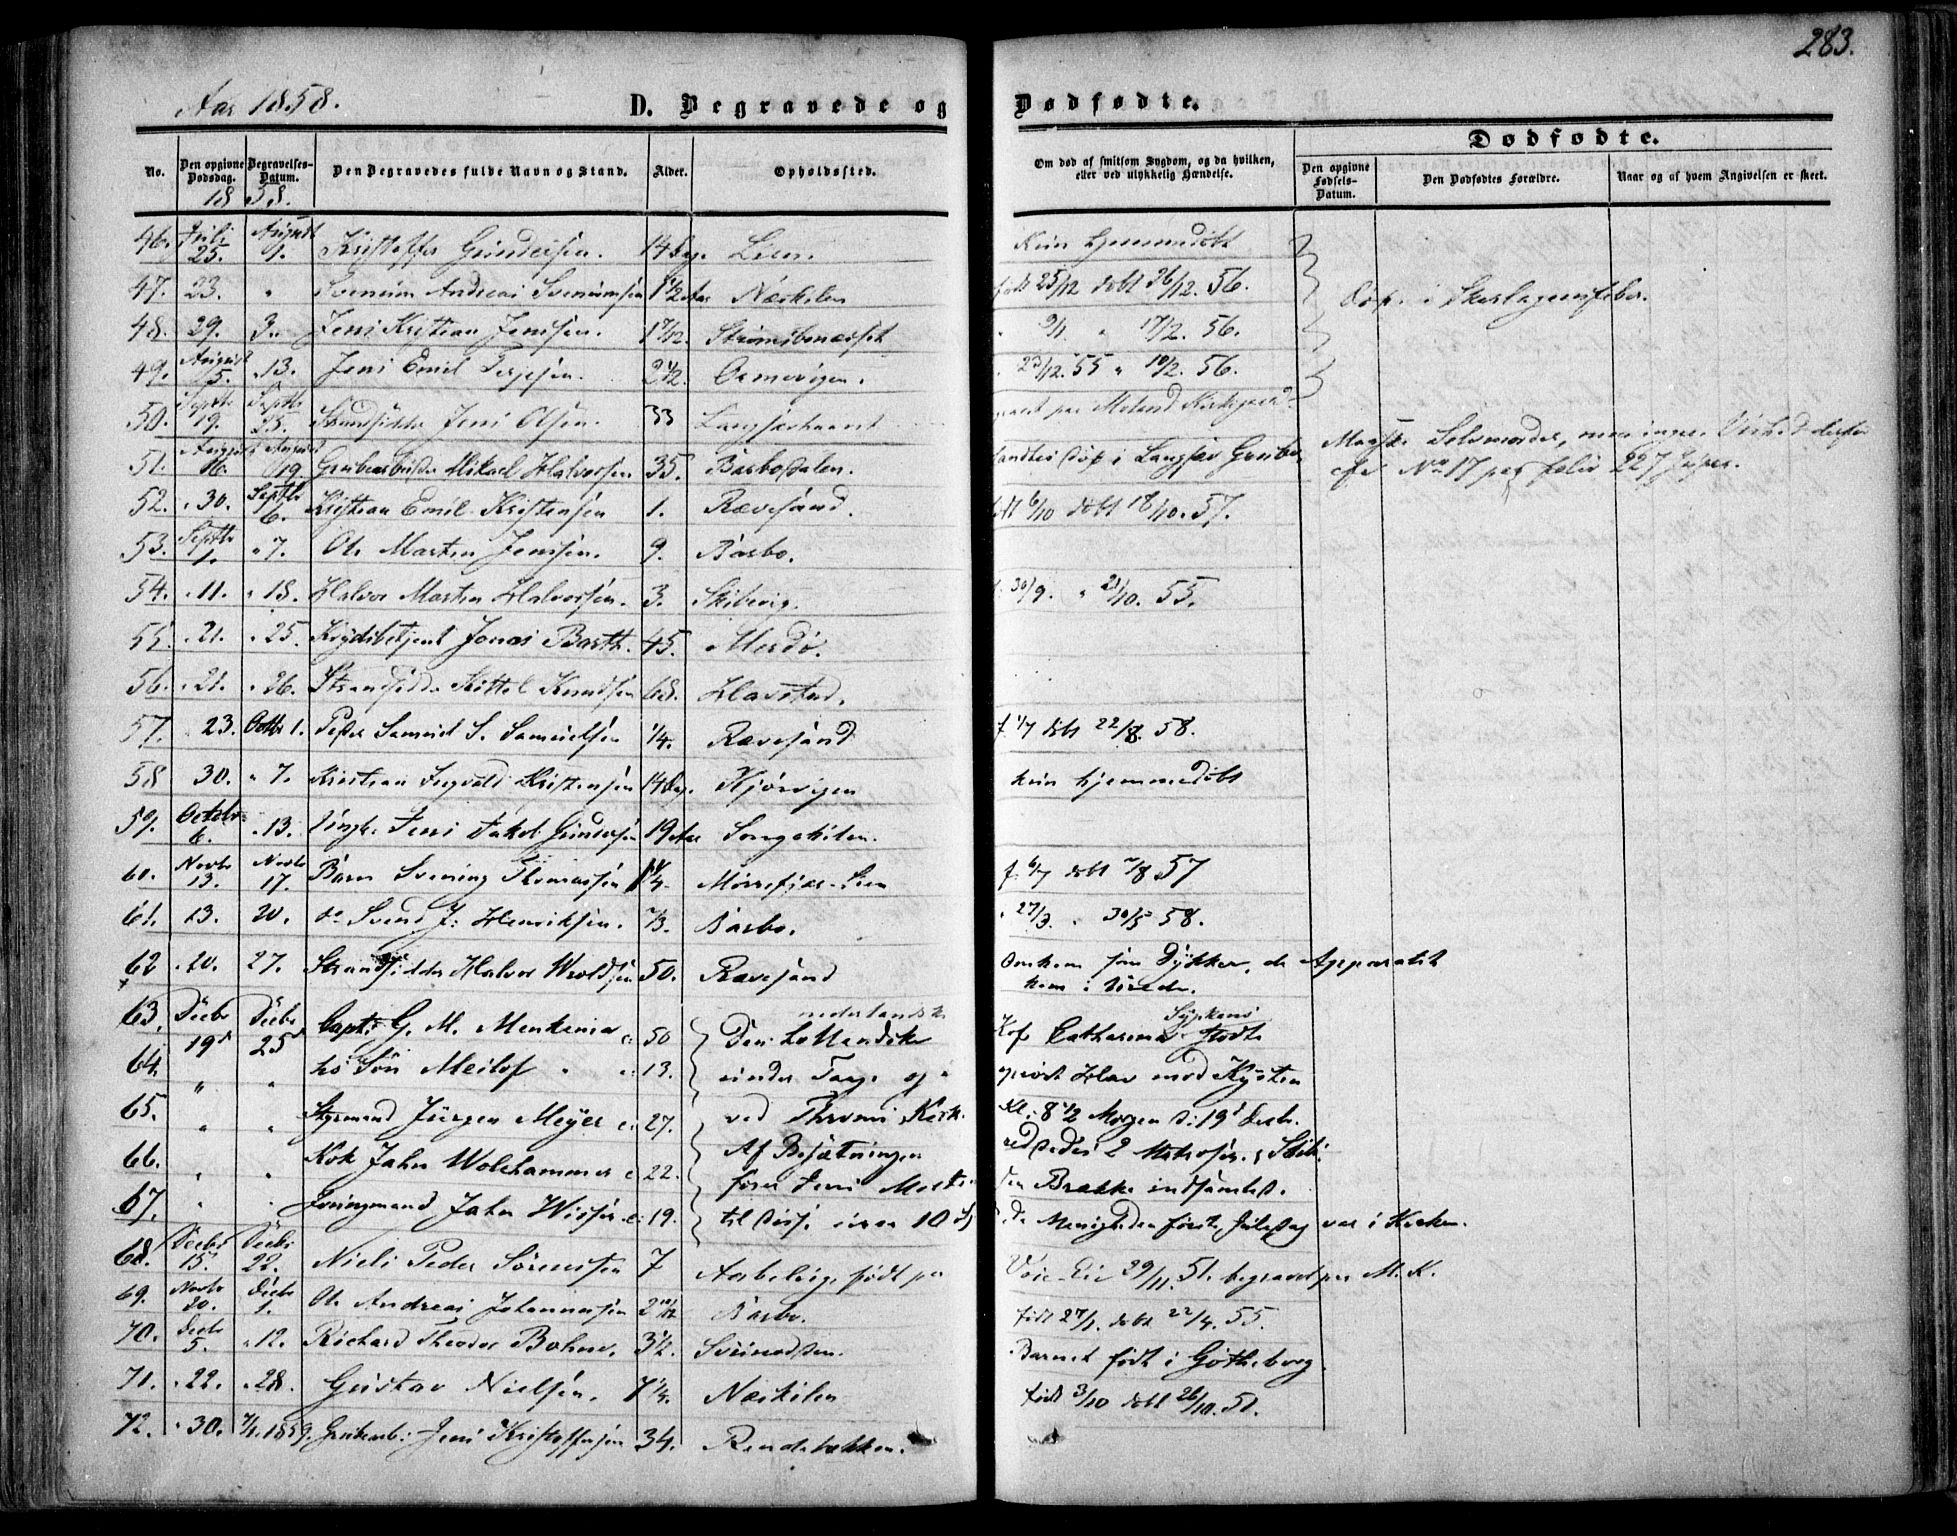 283.
Aar 1858.
D. Begravede og Dødfødte.
Dødfødte.
No.
Den opgivne Dødsdag.
Begravelses-Datum.
Den Begravedes fulde Navn og Stand.
Alder.
Opholdssted.
Om død af smitsom Sygdom, og da hvilken, eller ved ulykkelig Hændelse.
Den opgivne Fødsels-Datum.
Den Dødfødtes Forældre.
Naar og af hvem Angivelsen er skeet.
1858.
46. Juli 25. August 1. Kristoffer Gundersen. 14 Dg. Lien. Kun hjemmedøbt
47. 23. " Andreas 1 1/2 Aar Neskilen født 25/12 døbt 26/12. 56. i Skarlagensfeber.
48. 29. 3. Jens Kristian Jensen. 1 7/12. 9/1. " 17/2. 56.
49. August 5. 13. Jens Emil Terjesen. 2 1/2. 23/12. 55 " 10/2. 56.
50. Septbr 19. Septbr 23. Strandsidder Jens Olsen. 33 paa Moland Kirkegaard.
51. August 16. August 19. Grubearbeider Mikael Halvorsen. 35. Barbodalen. i Langsæv Gruber
No 17 folio 227
52. 30. Septbr 6. Kristian Emil Kristensen 1. Rævesand. født 6/10 døbt 18/10. 57.
53. Septbr 1. 7. Ole Martin Jensen. 9. Barbo.
54. 11. 18. Halvor Martin Halvorsen. 3. Skibevig. 30/9. " 21/10. 55.
55. 21. 25. Krydsbetjent Jonas Barth. 45. Merdø.
56. 21. 26. Strandsidder Kittel Knudsen 68. Havstad.
57. 23. Octbr 1. Peder Samuel S. Samuelsen 1/4. Rævesand f. 1/7 døbt 22/8. 58.
58 30. " 7. Kristian Ingvald Kristensen 14 Dg. Kjørvigen kun hjemmedøbt
59. Octobr 6. 13. Jens Jakob Gundersen 19 Aar Songekilen.
60. Novbr 13. Novbr 17. Barn Svening Thomassen 1 1/4. f. 6/7 døbt 2/8 57
61. 13. 20. do Svend J. Henriksen. 2/3. Barbo. 27/3 " 30/5 58.
62 20. 27. Strandsidder Halvor Wroldsen 50. Rævesand Omkom som Dykker, da Apparatet kom i Uorden.
63. Decbr 19d Decbr 25d Capt: G. M. Menkema c: 50 Den hollandske nederlandske Kof Catharina
64. " " hs Søn Meilof " c: 13. under Tange og oprørt Hav mod Kysten
65. " " Styrmand Jürgen Meyer c: 27. ved Thromø Kirke Kl: 8 1/2 Morgen d: 19d Decbr.
66. " " Kok Jahn c: 22. Af Besætningen reddedes 2 Matroser.
67. " " Jungmand Jahn c: 19. til disse circa 10 da Menigheden første Juledag var i Kirken.
68. Decbr 15. Decbr 22. Niels Peder Sørensen 7 født paa 29/11. 51. begravet paa M. K.
69. Novbr 20. Decbr 1. Ole Andreas Johannesen 2 10/12 Barbo. født 27/1. døbt 22/4. 55.
70. Decbr 5. 12. Richard Theodor Bohne. 3 1/2. Barnet født i Götheborg.
71. 22. 28. Gustav Nielsen. 7 1/4. Neskilen født 3/10 døbt 26/10. 51.
72. 30. 7/1. 1859. Grubearb: Jens Kristoffersen 34.